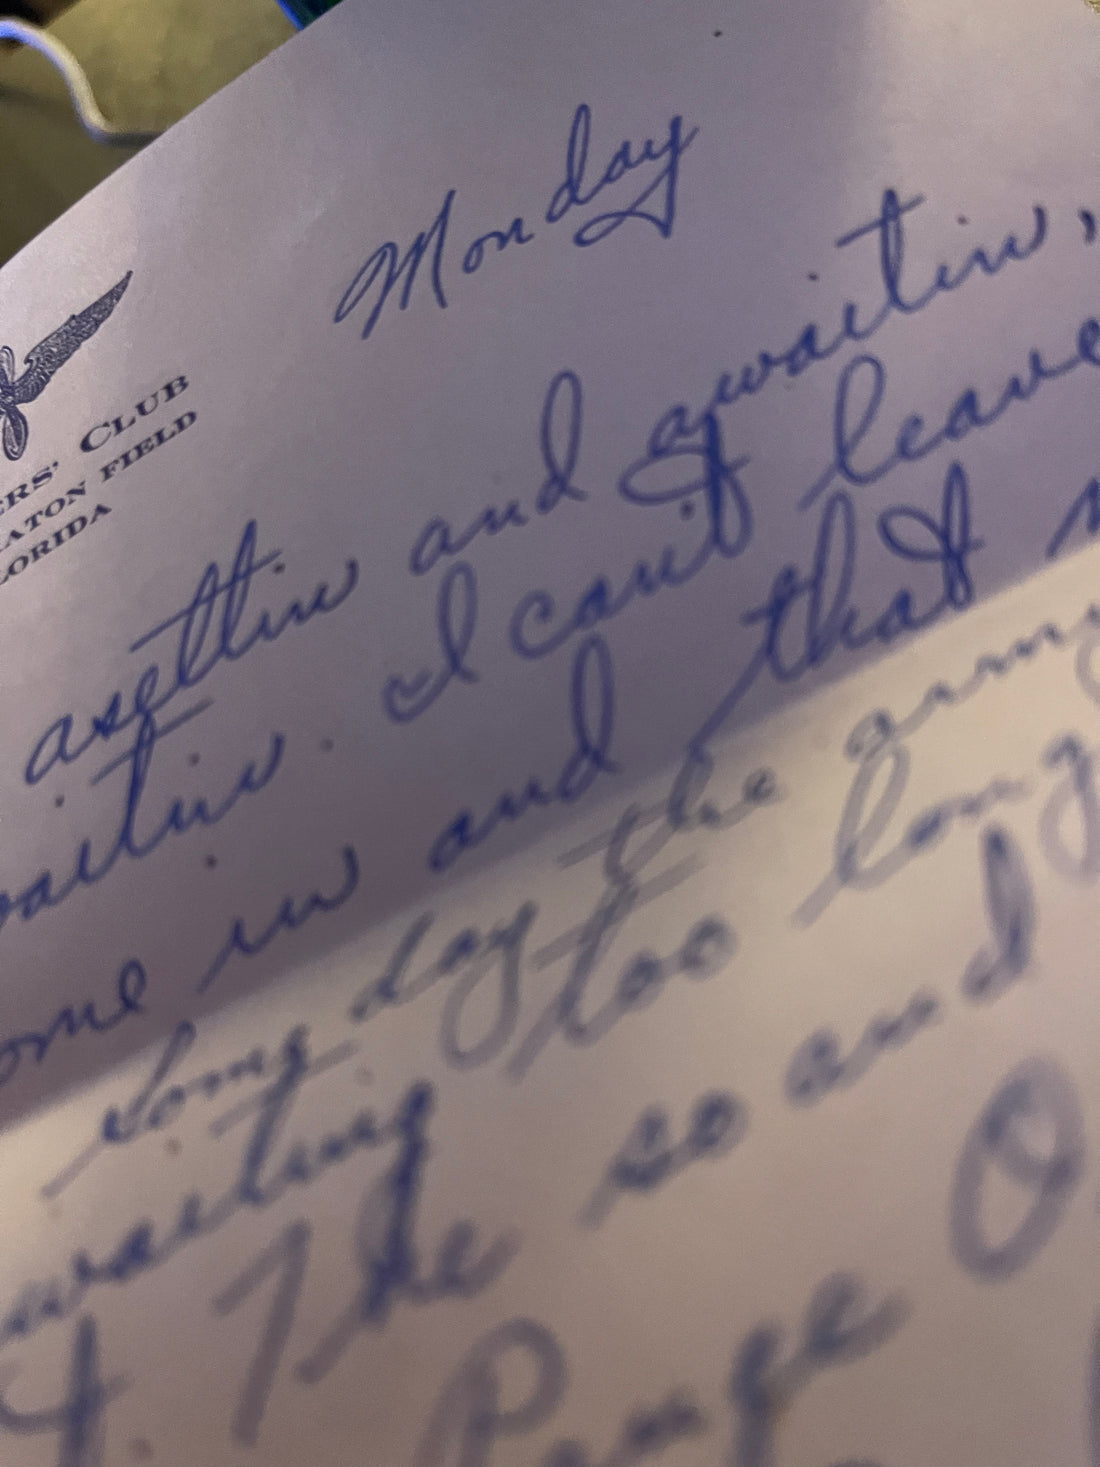 Monday
ERS' CLUB
RATON FIELD
LORIDA
asettin and awaitin,
waitin. I can't leave
ome in and that
Some day the army
waiting too long
I. The so and
Page O